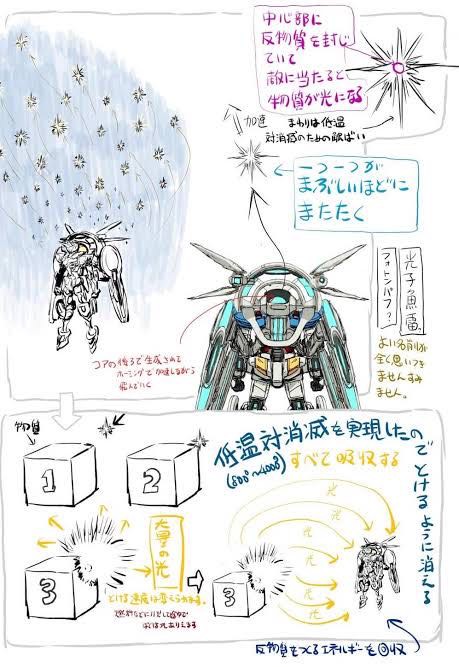 中心部に
反物質を封じ
ていて
敵に当たると
物質が光になる
加速
まわりは低温
対消滅のための
一つ一つが
まぶしいほどに
またたく
光子魚雷
フォトンバフ?
よい名前が
全く思いつき
ませんすみ
ません。
コアの後ろで生成されて
ホーミングで加速しながら
飛んでいく
物質
1
2
3
大量の光
とける速度は変えられる。
3
低温対消滅を実現したので
(800°~4000°)
すべて吸収する
とけるように消える
光
光
光
光
光
光
反物質をつくるエネルギーを回収